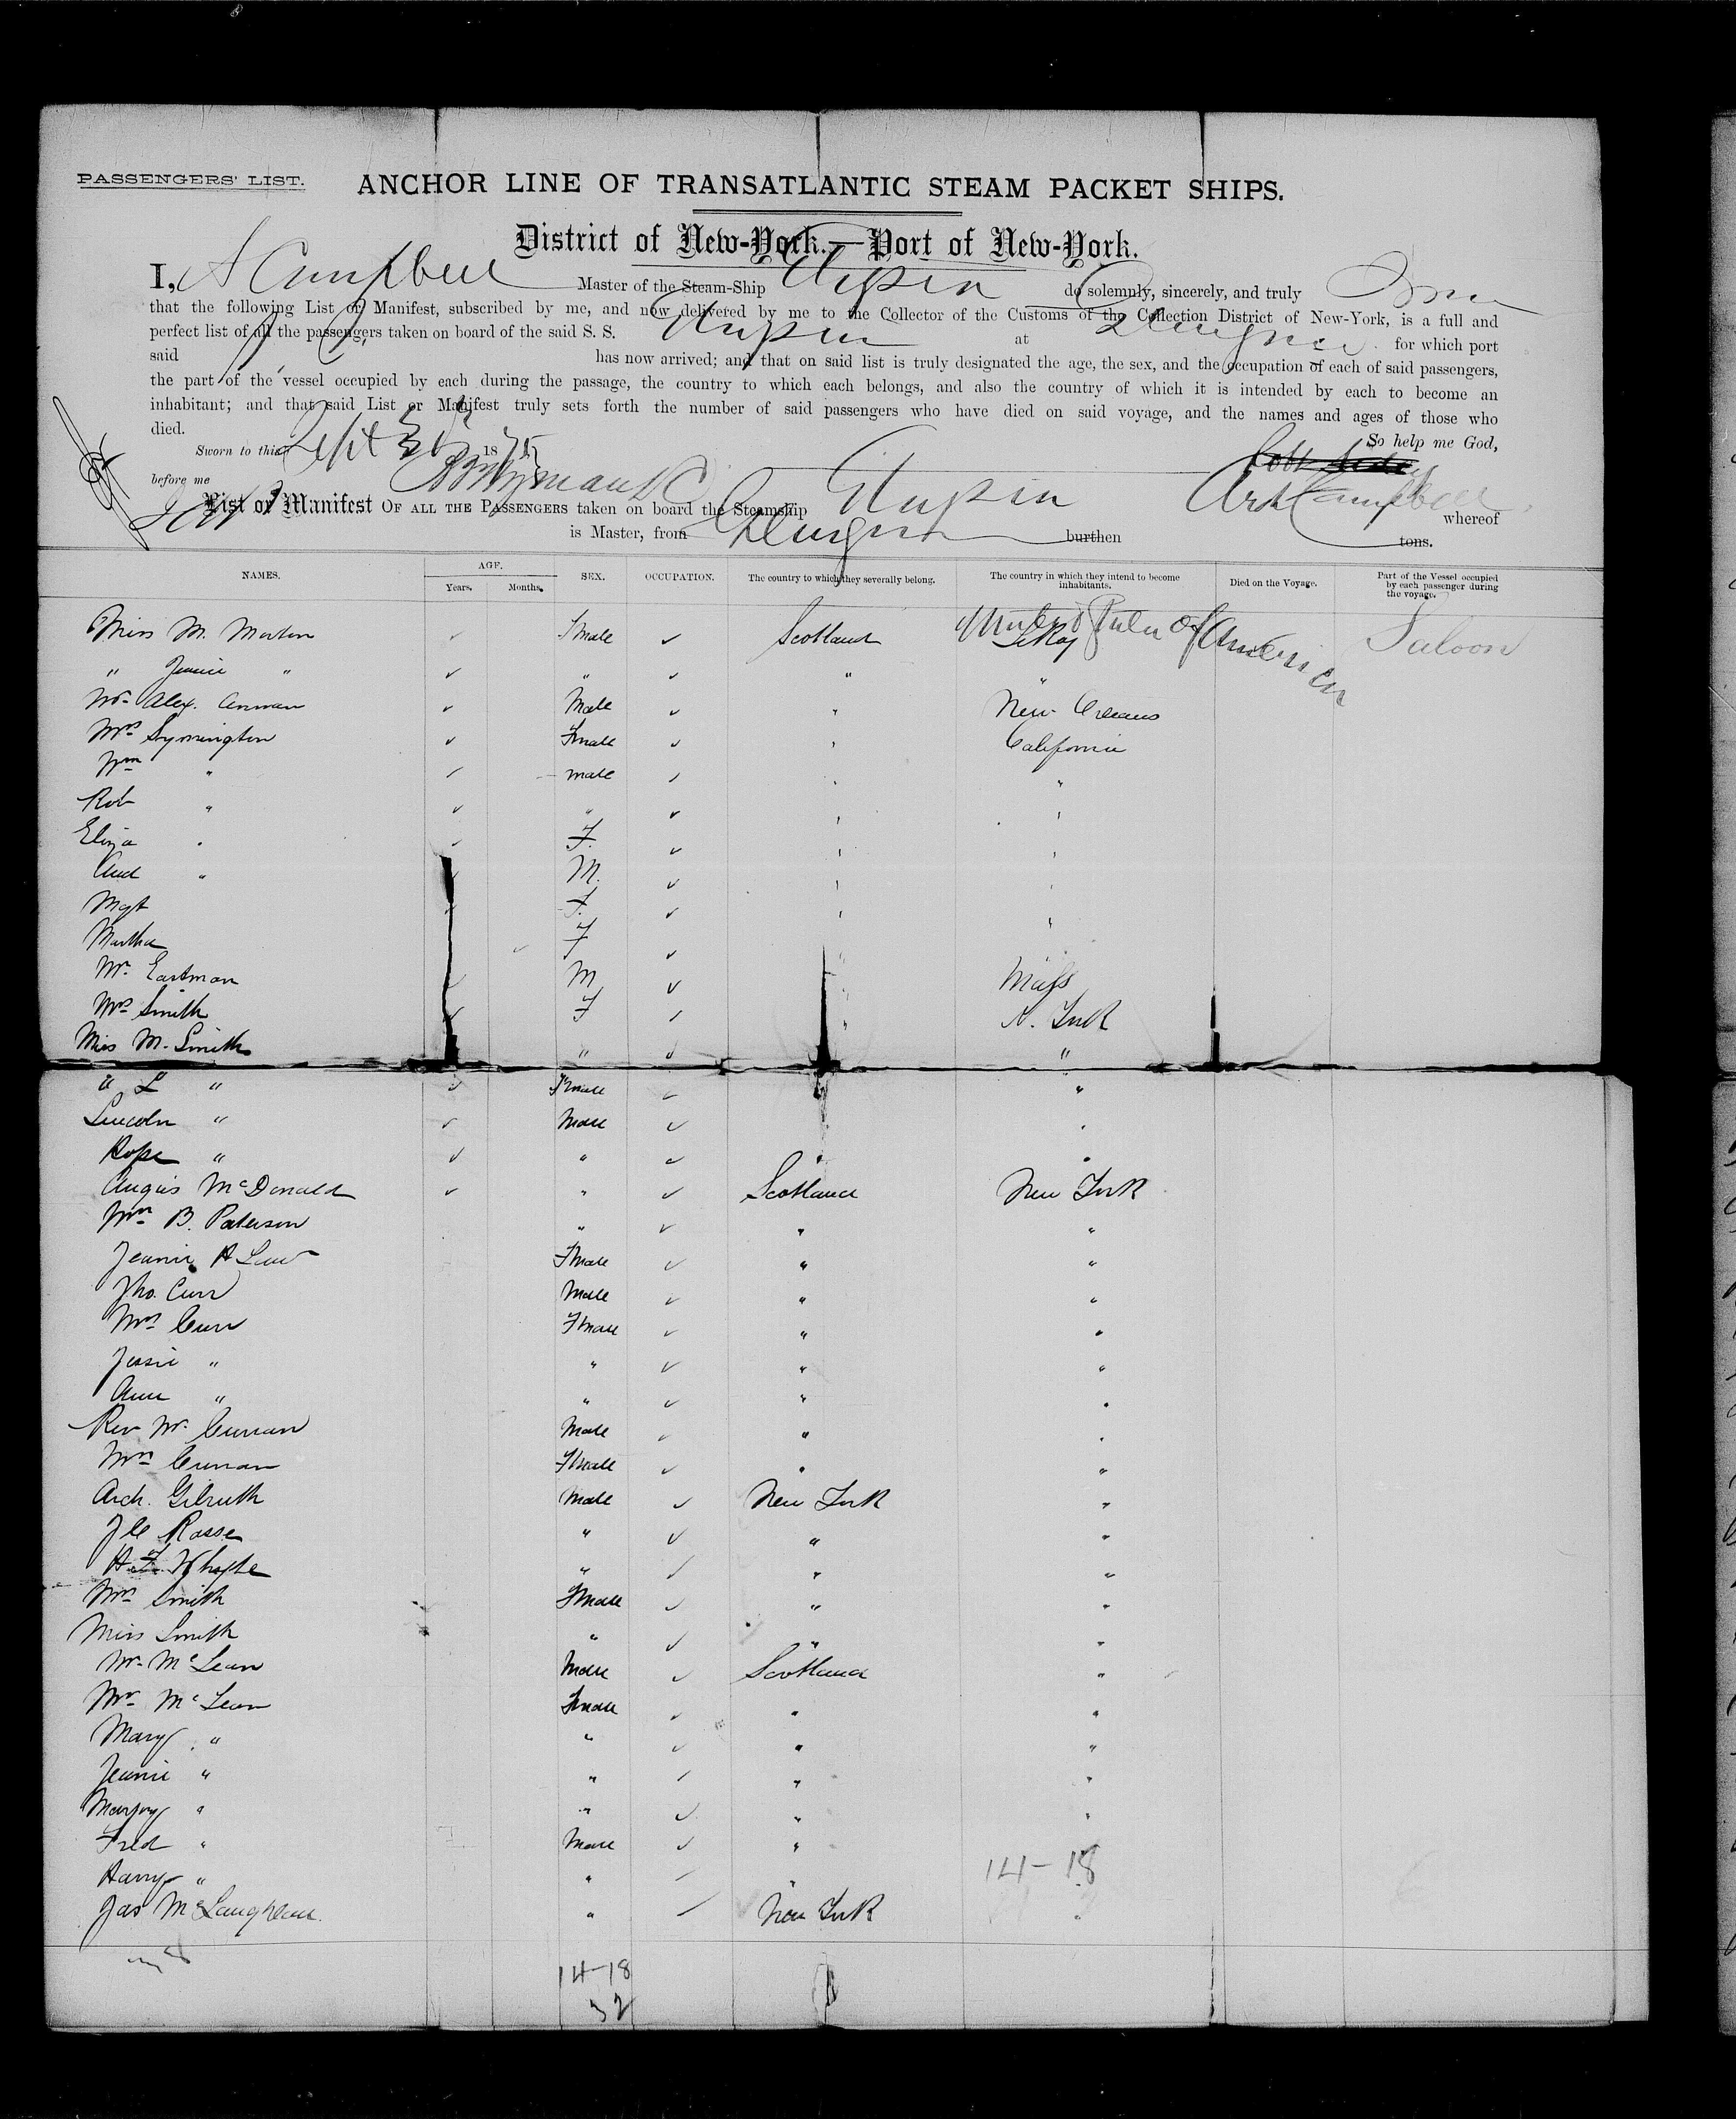 PASSENGERS' LIST.
ANCHOR LINE OF TRANSATLANTIC STEAM PACKET SHIPS.
District of New-York.—Port of New-York.
I, A Campbell Master of the Steam-Ship do solemnly, sincerely, and truly
that the following List or Manifest, subscribed by me, and now delivered by me to the Collector of the Customs of the Collection District of New-York, is a full and
perfect list of all the passengers taken on board of the said S. S. at for which port
said has now arrived; and that on said list is truly designated the age, the sex, and the occupation of each of said passengers,
the part of the vessel occupied by each during the passage, the country to which each belongs, and also the country of which it is intended by each to become an
inhabitant; and that said List or Manifest truly sets forth the number of said passengers who have died on said voyage, and the names and ages of those who
died. So help me God,
Sworn to this Sept 1875
before me
List or Manifest OF ALL THE PASSENGERS taken on board the Steamship Arch Campbell whereof
is Master, from burthen tons.
NAMES. AGE. Years. Months. SEX. OCCUPATION. The country to which they severally belong. The country in which they intend to become inhabitants. Died on the Voyage. Part of the Vessel occupied by each passenger during the voyage.
Miss M. Morton Fmale Scotland LeRoy United States of America Saloon
" Jennie " " " "
Mr Alex. Male " New Orleans
Mrs Symington Fmale " California
Wm " male " "
Rob " " " "
Eliza " F. " "
And " M. " "
Mgt F. " "
Martha F " "
Mr. Eastman M " Mass
Mrs Smith F " N. York
Miss M. Smith " "
" L " Fmale "
Lincoln " Male "
Hope " " " "
Angus McDonald " Scotland New York
Mr B. Paterson " " "
Jeanie A Law Fmale " "
Jno. Curr Male " "
Mrs Curr Fmale " "
Jessie " " " "
Ann " " " "
Rev Mr. Curran Male " "
Mrs Curran Fmale " "
Arch. Gilruth Male New York "
Rosse " " "
H. F. Whyte " " "
Mrs Smith Fmale " "
Miss Smith " " "
Mr. McLean Male Scotland "
Mrs McLean Fmale " "
Mary " " " "
Jeanie " " " "
Marjory " " " "
Fred " Male "
Harry " " " 14-18
Jas McLaughlan. " New York "
14-18
32